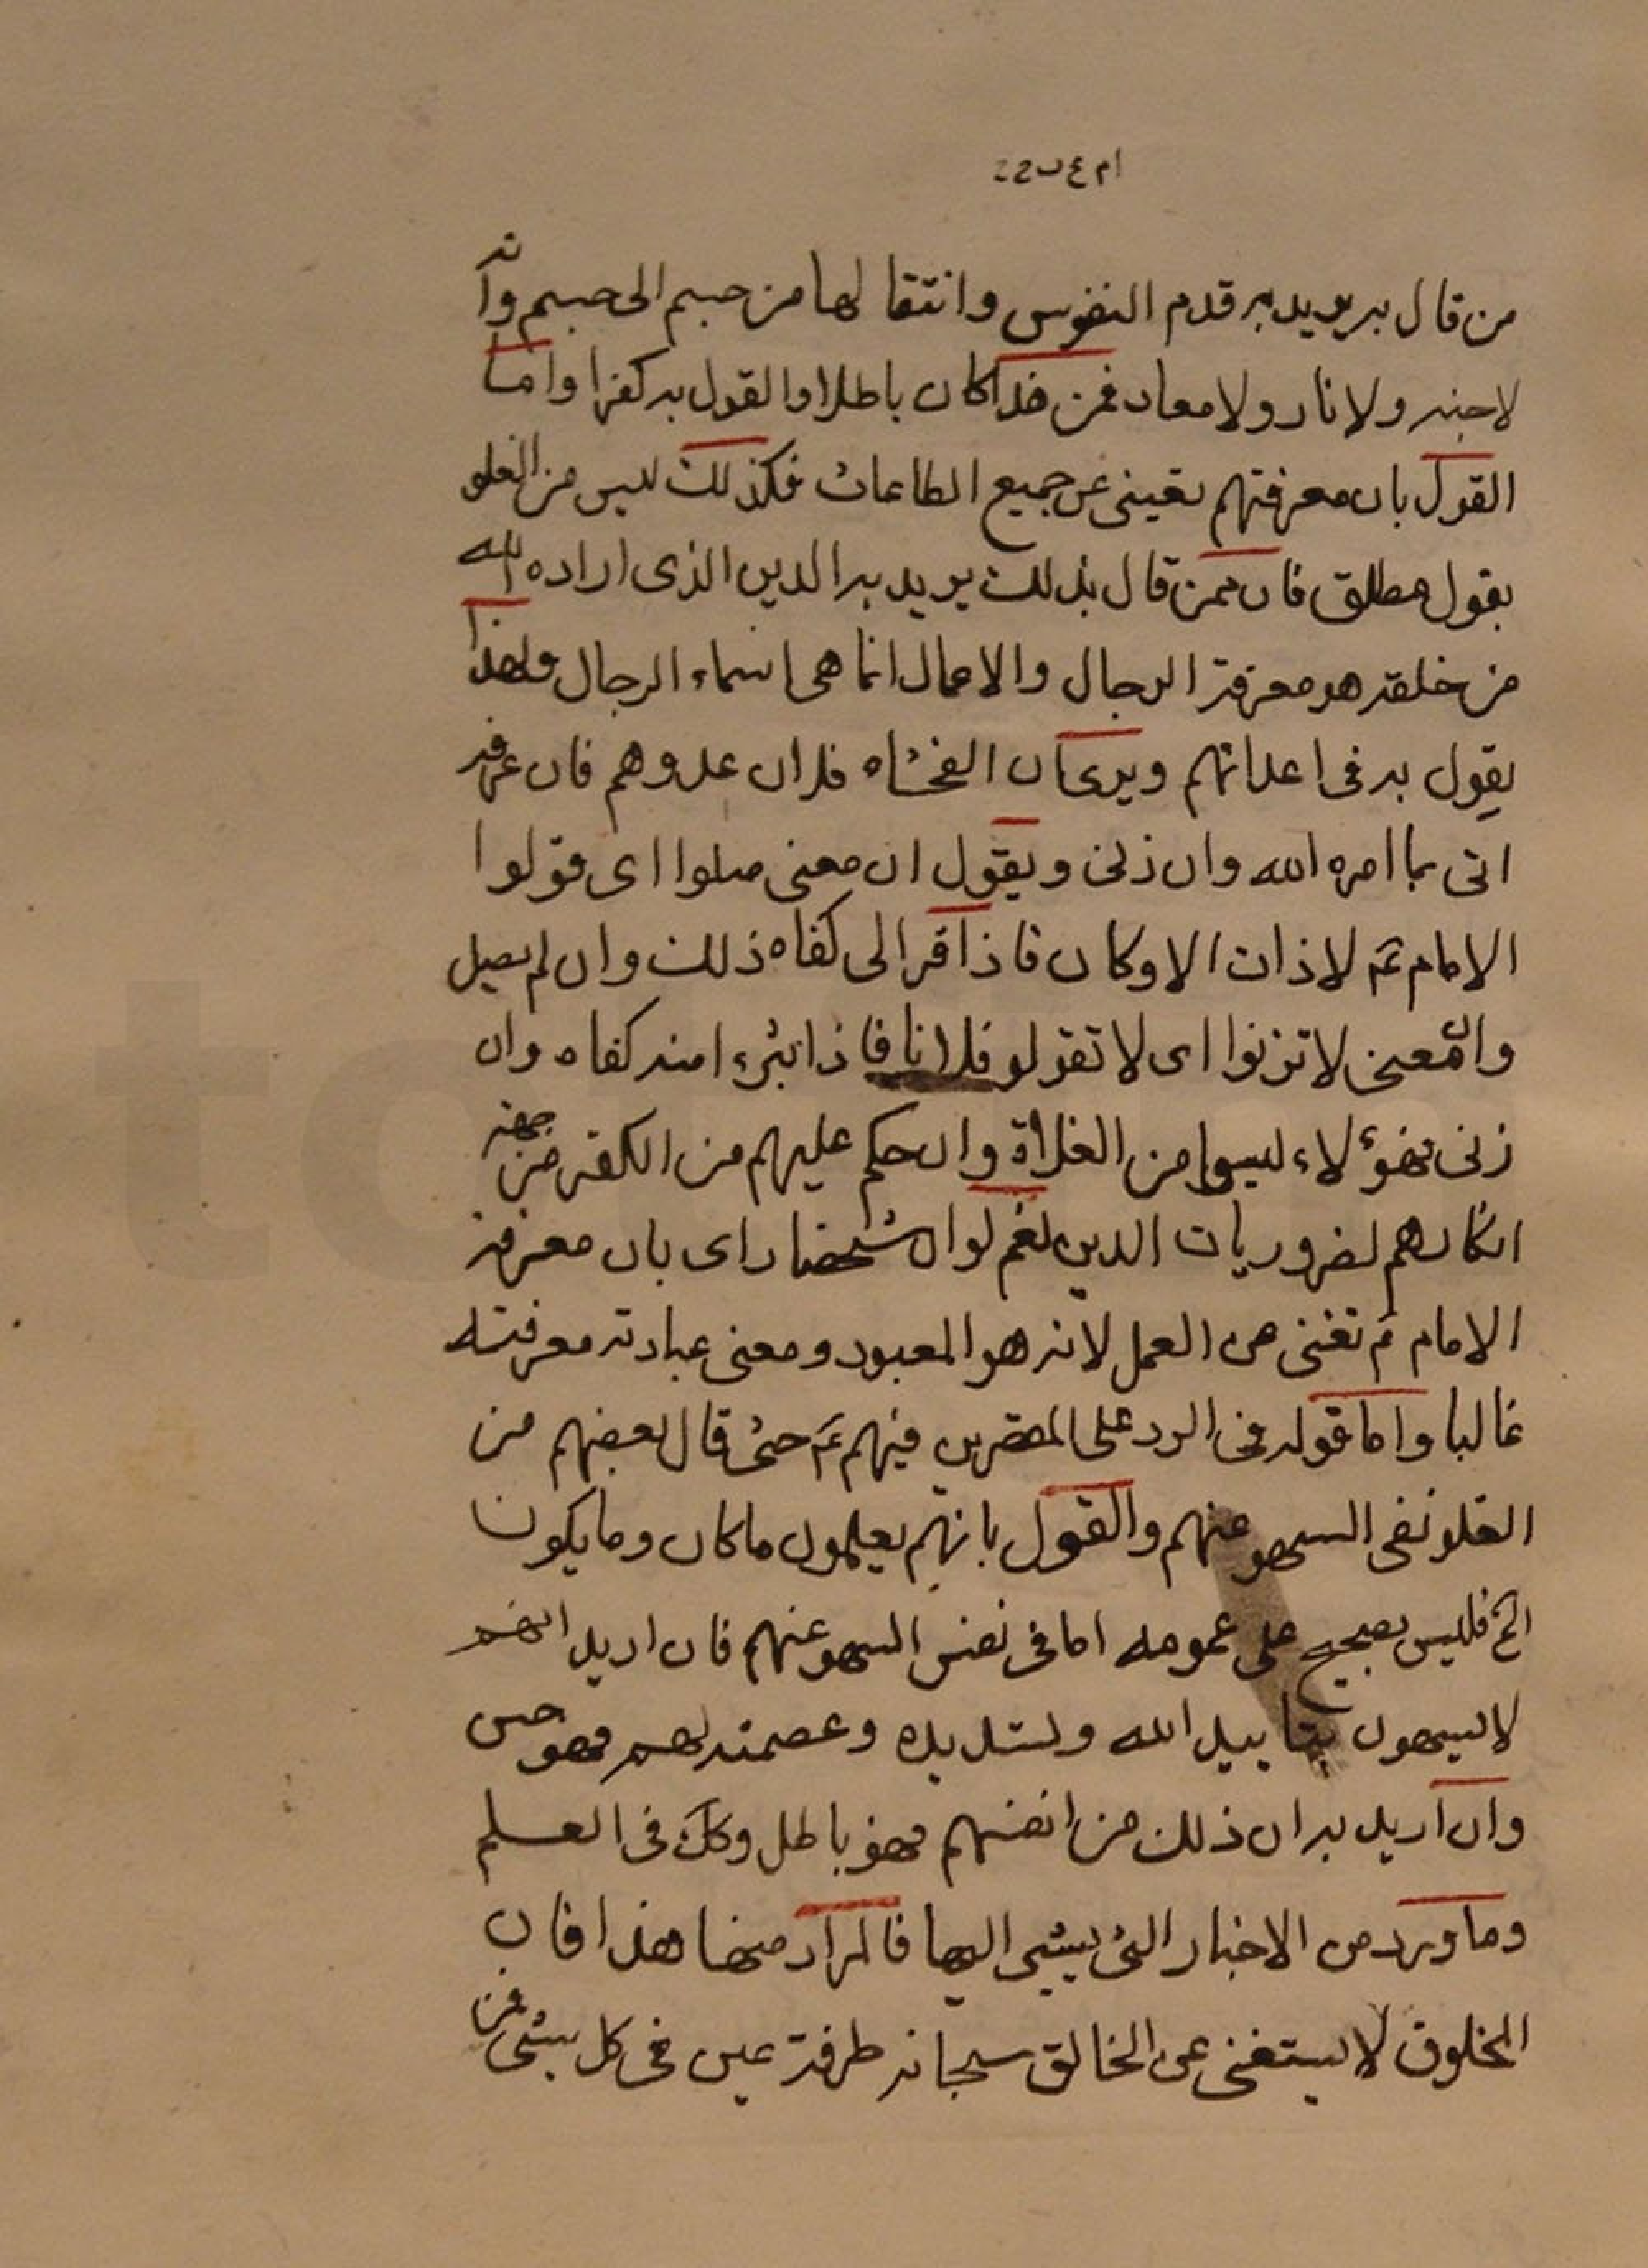 من قال به يريد به قدم النفوس وانتقالها من جسم الى جسم وانه
لاجنة ولا نار ولا معاد فمن هذا كان باطلا والقول به كفرا واما
القول بان معرفتهم تغنى عن جميع الطاعات فكذلك ليس من الغلو
بقول مطلق فان ممن قال بذلك يريد به الدين الذى اراده الله
من خلقه هو معرفة الرجال والاعمال انما هى اسماء الرجال ولهذا
يقول به فى اعدائهم ويرى ان الفحشاء فلان عدوهم فان عرفه
اتى بما امره الله وان زنى ويقول ان معنى صلوا اى قولوا
الامام عم لا ذات الاركان فاذا اقر الى كفاه ذلك وان لم يصل
وان معنى لا تزنوا اى لا تقولو فلانا فاذا تبرء امنه كفاه وان
زنى فهؤلاء ليسوا من الغلاة وان حكم عليهم من الكفر من جهة
انكارهم لضروريات الدين نعم لو ان شخصا راى بان معرفة
الامام عم تغنى عن العمل لانه هو المعبود ومعنى عبادته معرفته
غالبا واما قوله فى الرد على المقصرين فيهم عم حتى قال بعضهم من
الغلو نفى السهو عنهم والقول بانهم يعلمون ما كان وما يكون
الخ فليس بصحيح على عمومه اما فى نفس السهو عنهم فان اريد انهم
لا يسهون بتاييد الله وتسديده وعصمته لهم فهو حسن
وان اريد به ان ذلك من انفسهم فهو باطل وكك فى العلم
وما ورد من الاخبار التى يشير اليها فالمراد منها هذا فان
المخلوق لا يستغنى عن الخالق سبحانه طرفة عين فى كل شى من